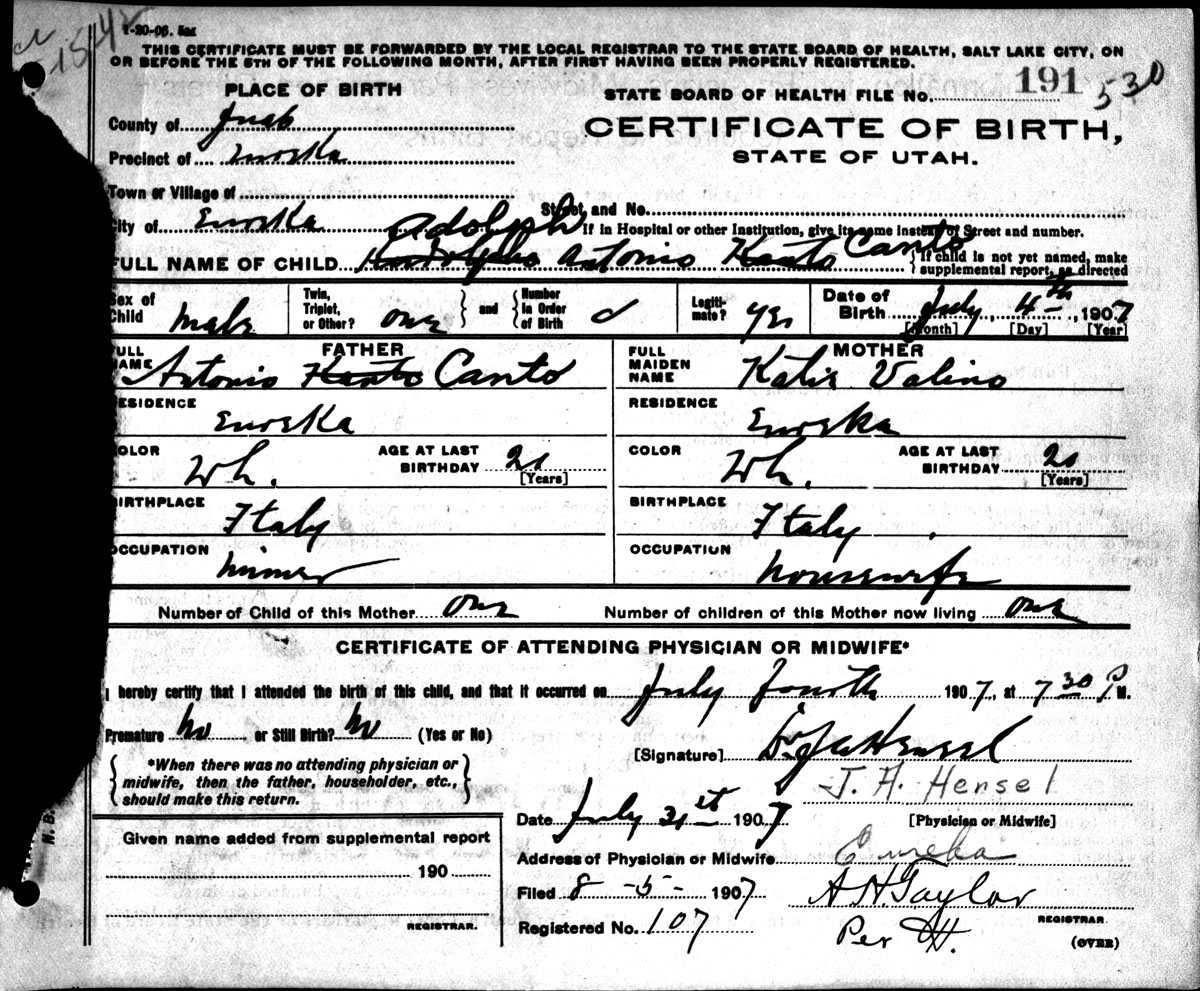 1-20-06. 5M
1542
THIS CERTIFICATE MUST BE FORWARDED BY THE LOCAL REGISTRAR TO THE STATE BOARD OF HEALTH, SALT LAKE CITY, ON
OR BEFORE THE 5TH OF THE FOLLOWING MONTH, AFTER FIRST HAVING BEEN PROPERLY REGISTERED.
PLACE OF BIRTH
STATE BOARD OF HEALTH FILE No. 191 530
County of Juab
CERTIFICATE OF BIRTH,
Precinct of Eureka
STATE OF UTAH.
Town or Village of
Street and No.
City of Eureka
If in Hospital or other Institution, give its name instead of Street and number.
Adolph
FULL NAME OF CHILD Antonio Kanto Canto
If child is not yet named, make supplemental report, as directed
Sex of Child male
Twin, Triplet, or Other? one and Number in Order of Birth
Legiti-mate? yes
Date of Birth July 4th, 1907
[Month] [Day] [Year]
FATHER
MOTHER
FULL NAME Antonio Kanto Canto
FULL MAIDEN NAME Katie Valino
RESIDENCE Eureka
RESIDENCE Eureka
COLOR Wh. AGE AT LAST BIRTHDAY [Years]
COLOR Wh. AGE AT LAST BIRTHDAY [Years]
BIRTHPLACE Italy
BIRTHPLACE Italy
OCCUPATION miner
OCCUPATION housewife
Number of Child of this Mother one
Number of children of this Mother now living one
CERTIFICATE OF ATTENDING PHYSICIAN OR MIDWIFE*
I hereby certify that I attended the birth of this child, and that it occurred on July fourth 1907, at 7 30 P M.
Premature no or Still Birth? no (Yes or No)
[Signature] Dr J A Hensel
*When there was no attending physician or
midwife, then the father, householder, etc.,
should make this return.
J. A. Hensel
Date July 31st 1907
[Physician or Midwife]
Given name added from supplemental report
190
REGISTRAR.
Address of Physician or Midwife Eureka
Filed 8 - 5 - 1907
A H Taylor
REGISTRAR.
Registered No. 107
Per H.
(OVER)
N. B.